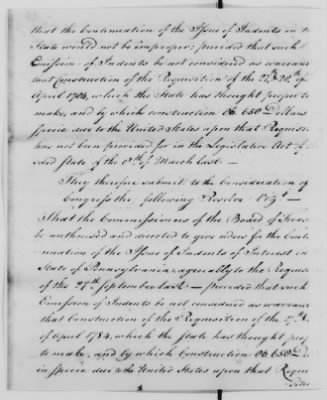 that the Continuation of the Issue of Indents in
State would not be improper: provided that such
Emission of Indents be not considered as warran
tant Construction of the Requisition of the 27th & 28th of
April 1784, which the State has thought proper to
make, and by which construction 06.650 Dollars
specie due to the United States upon that Requisn
has not been provided for in the Legislative Act of
said State of the 8th of March last —
They therefore submit to the Consideration of
Congress the following Resolve
That the Commissioners of the Board of Treas
be authorised and directed to give orders for the Conti
nuation of the Issue of Indents of Interest in
State of Pennsylvania, agreeably to the Requis
of the 27th September last — provided that such
Emission of Indents be not considered as warran
that Construction of the Requisition of the 27th &
of April 1784, which the State has thought prop
to make, and by which Construction 06.650 D
in specie due to the United States upon that Requi